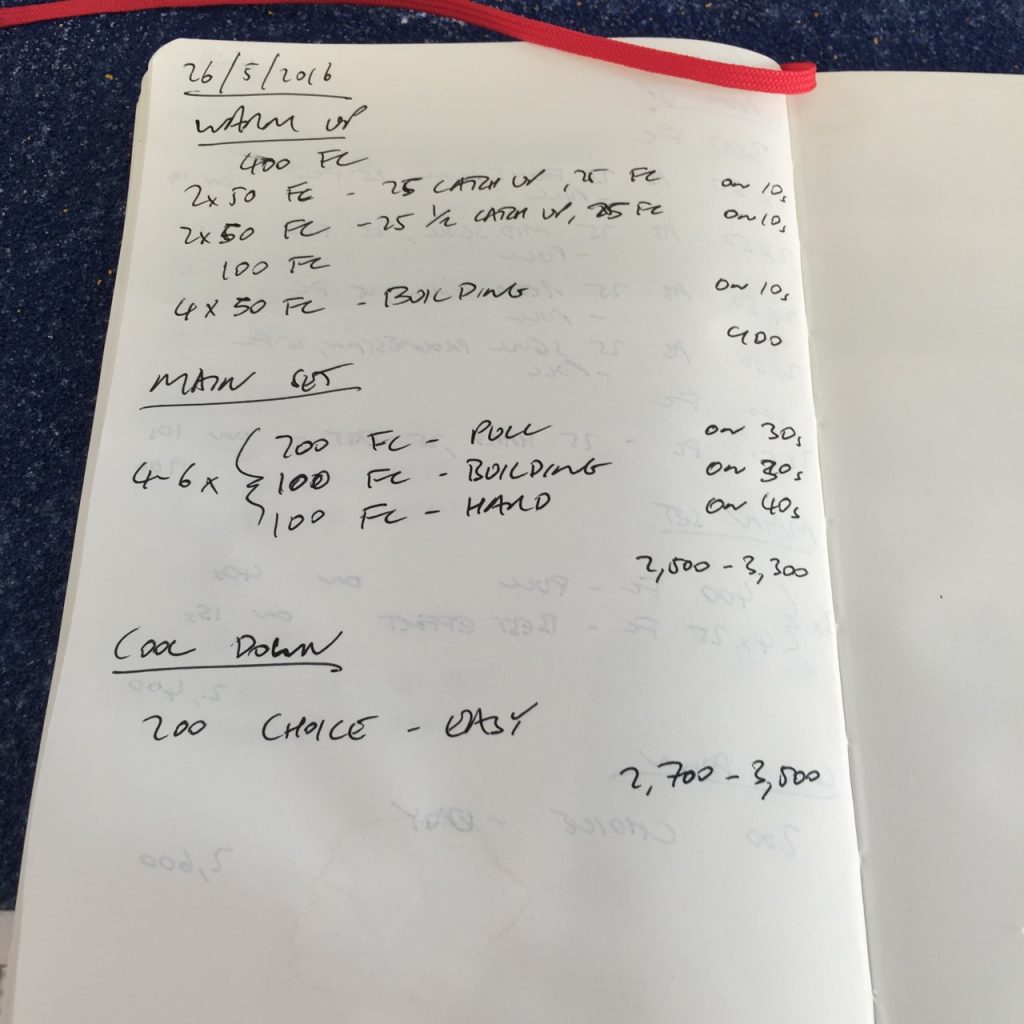 26/5/2016
WARM UP
400 FC
2x50 FC - 25 CATCH UP, 25 FC on 10s
2x50 FC - 25 1/2 CATCH UP, 25 FC on 10s
100 FC
4x50 FC - BUILDING on 10s
900
MAIN SET
200 FC - PULL on 30s
4-6 x { 100 FC - BUILDING on 30s
100 FC - HARD on 40s
2,500 - 3,300
COOL DOWN
200 CHOICE - EASY
2,700 - 3,500